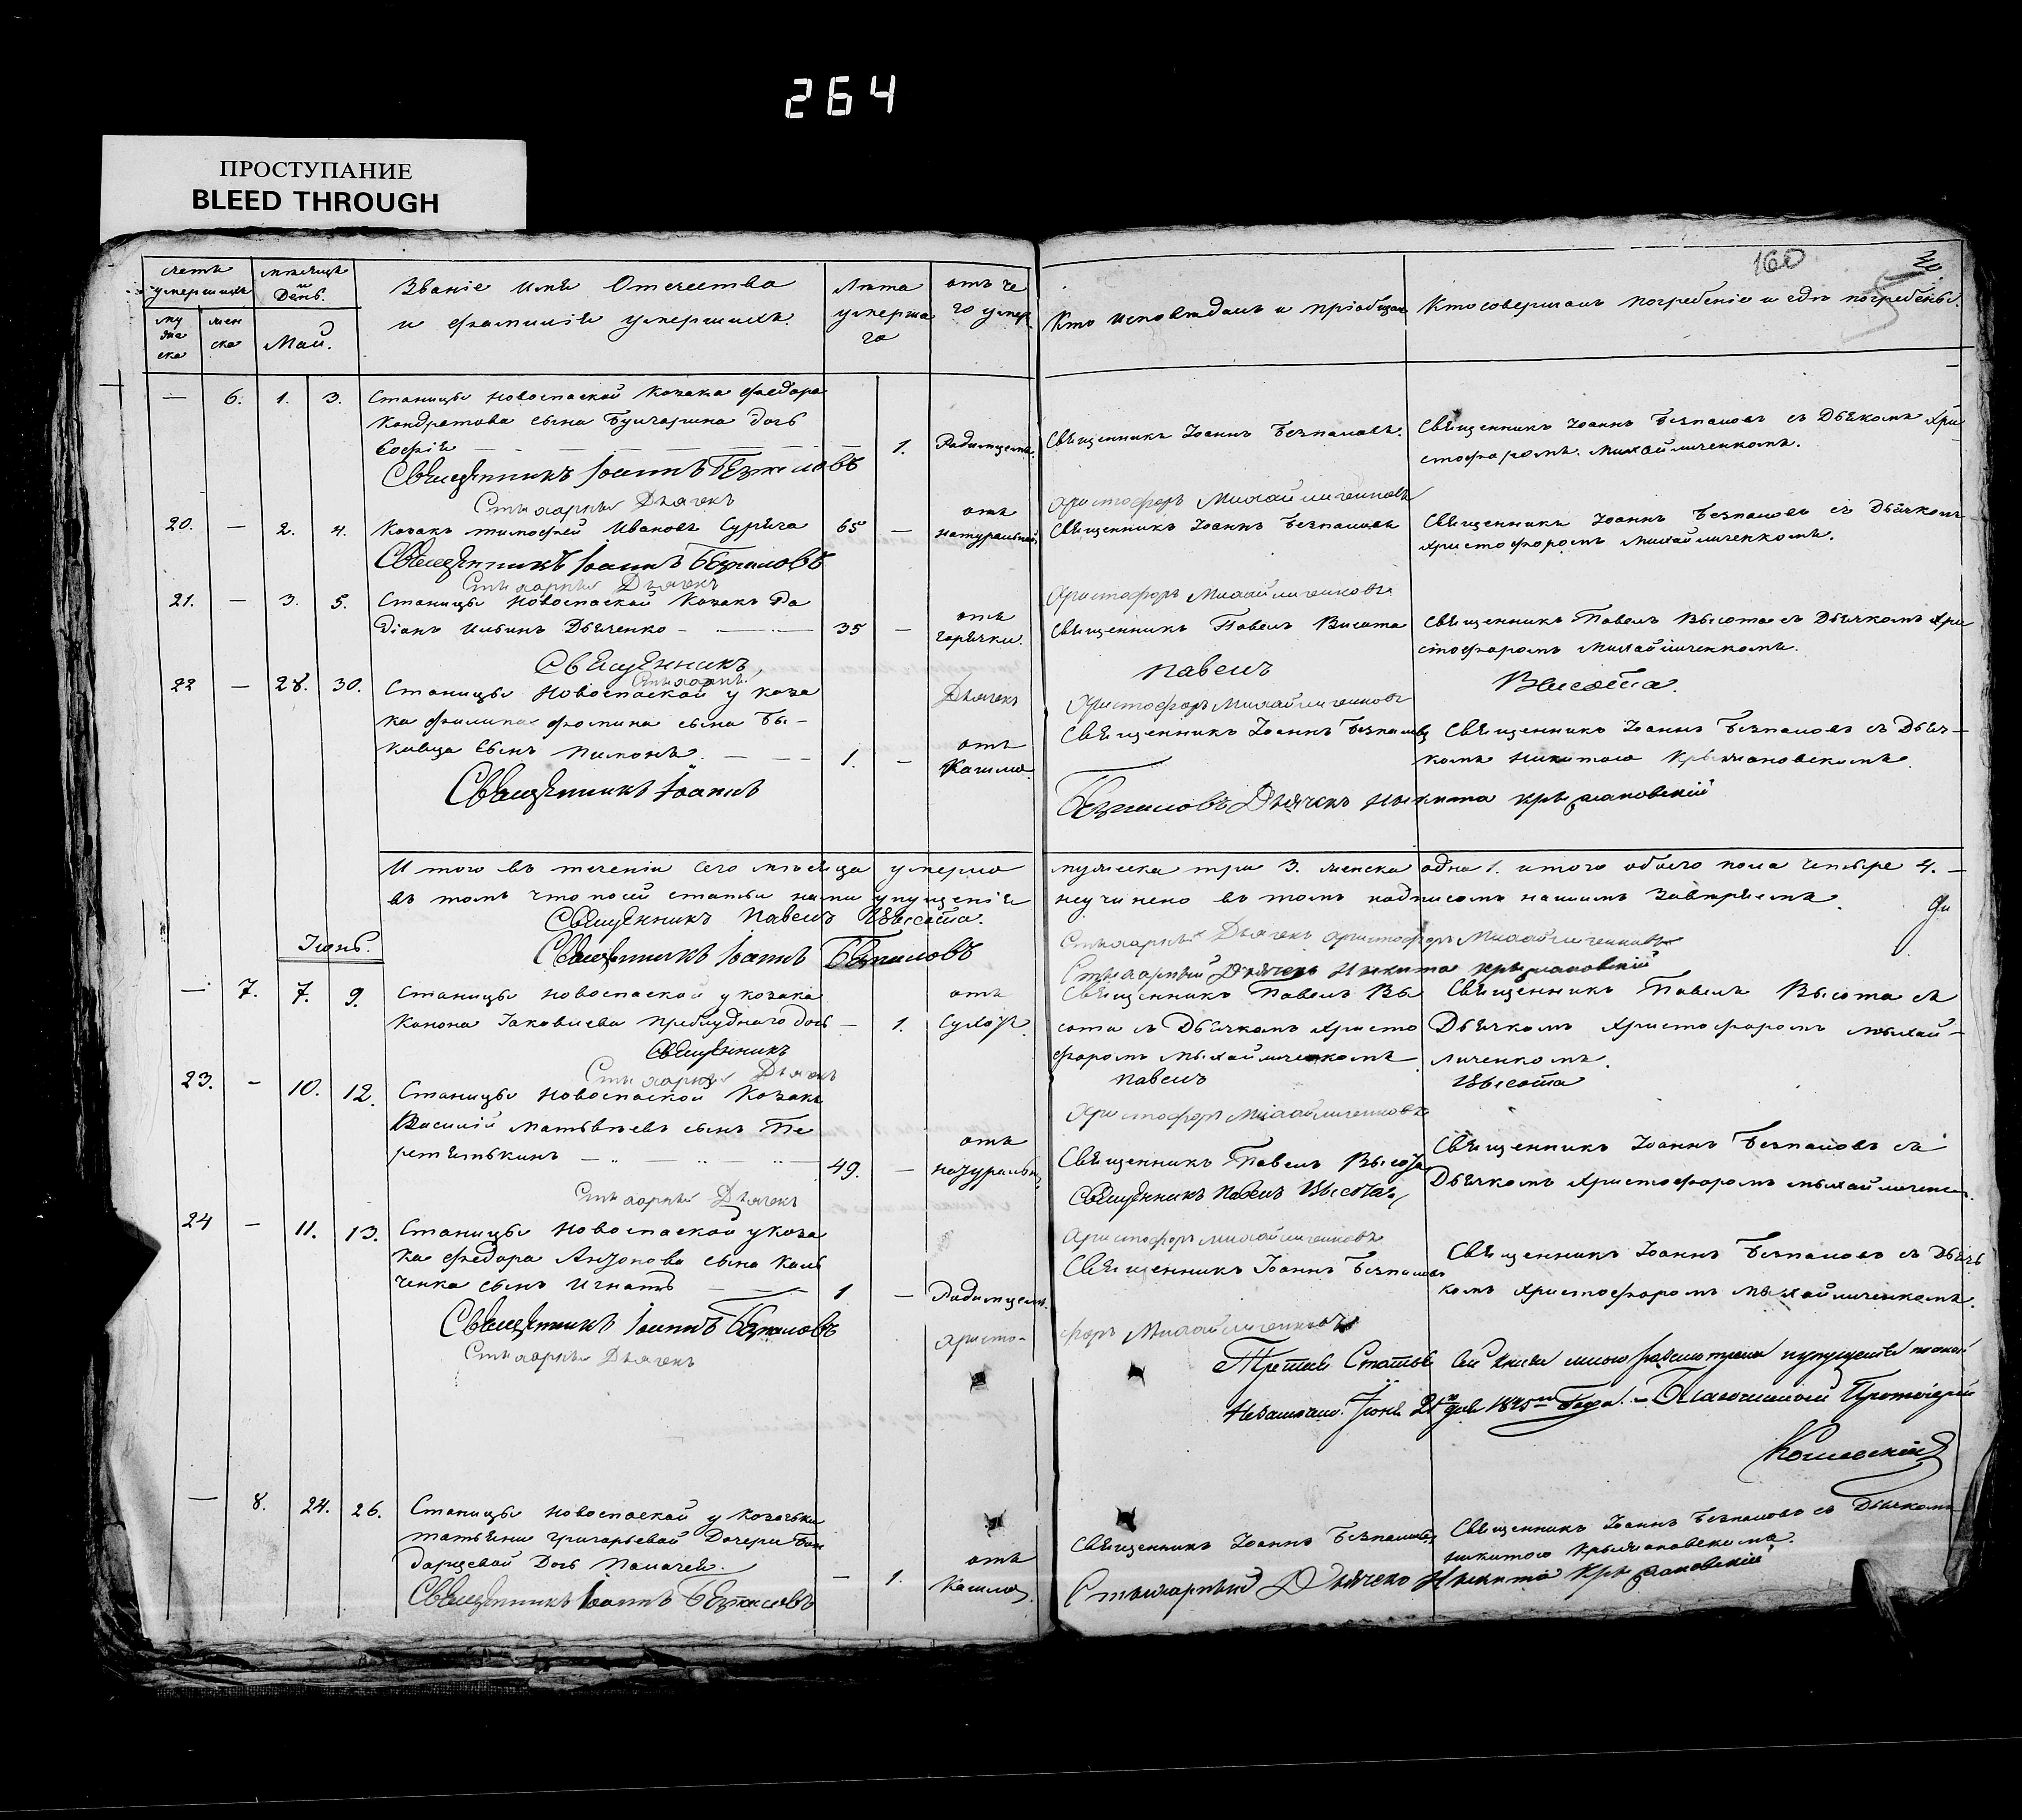 264
ПРОСТУПАНИЕ
BLEED THROUGH
160
30.
счетъ умершихъ
мѣсяцъ и День.
Званіе имя Отечество
и фамилія умершихъ.
Лѣта умерша го
отъ че го умер.
Кто исповѣдалъ и пріобщал
Кто совершалъ погребеніе и гдѣ погребены.
му жеска
жен ска
Май.
— 6. 1. 3. Станицы Новоспаской Козака Федора
Кондратова сына дочь
Софія — 1. Радимцемъ.
Священникъ Іоаннъ Безпаловъ.
Священникъ Іоаннъ Безпаловъ съ Дьячкомъ Хри
стофоромъ Михайличенкомъ.
Священникъ Іоаннъ Безпаловъ
Стихарный Дьячекъ Христофоръ Михайличенковъ
20. — 2. 4. Козакъ Тимофей Ивановъ Сурѣга 65 — отъ натуральной
Священникъ Іоаннъ Безпаловъ
Священникъ Іоаннъ Безпаловъ съ Дьячкомъ
Христофоромъ Михайличенкомъ.
Священникъ Іоаннъ Безпаловъ
Стихарный Дьячекъ Христофоръ Михайличенковъ
21. — 3. 5. Станицы Новоспаской Козакъ Ра
діонъ Ильинъ Дьяченко — 35 — отъ горячки.
Священникъ Павелъ Высота
Священникъ Павелъ Высота съ Дьячкомъ Хри
стофоромъ Михайличенкомъ.
Священникъ Павелъ Высота.
Стихарны. Дьячекъ Христофоръ Михайличенковъ
22 — 28. 30. Станицы Новоспаской у коза
ка Филипа Фомина сына Бы-
ковца сынъ Пимонъ. — 1. — отъ Кашля
Священникъ Іоаннъ Безпаловъ
Священникъ Іоаннъ Безпаловъ съ Дьяч-
комъ Никитою Крыжановскомъ.
Священникъ Іоаннъ Безпаловъ Дьячекъ Никита Крыжановскій
Итого въ теченіи сего мѣсяца умерло мужеска три 3. женска одна 1. итого обоего пола четыре 4. —
въ томъ что посей статьи нами упущенія неучинено въ томъ подписомъ нашимъ завѣряемъ.
Священникъ Павелъ Высота.
Стихарный Дьячекъ Христофоръ Михайличенковъ
Священникъ Іоаннъ Безпаловъ
Стихарный Дьячекъ Никита Крыжановскій
Іюнь.
— 7. 7. 9. Станицы Новоспаской у козака
Конона Іаковлева Приблуднаго дочь — 1. отъ Сухот.
Священникъ Павелъ Вы
сота съ Дьячкомъ Христо
форомъ Мыхайличенкомъ
Священникъ Павелъ Высота съ
Дьячкомъ Христофоромъ Мыхай-
личенкомъ.
Священникъ Павелъ Высота
Стихарный Дьячекъ Христофоръ Михайличенковъ
23. — 10. 12. Станицы Новоспаской Козакъ
Василій Матвѣевъ сынъ Пе
ретятькинъ — 49. — отъ натуральн.
Священникъ Павелъ Высота
Священникъ Павелъ Высота,
Священникъ Іоаннъ Безпаловъ съ
Дьячкомъ Христофоромъ Мыхайличенк.
Стихарный Дьячекъ Христофоръ Михайличенковъ
24 — 11. 13. Станицы Новоспаской у коза
ка Федора Антонова сына Каль
ченка сынъ Игнатъ — 1 — Радимцемъ.
Священникъ Іоаннъ Безпаловъ
Священникъ Іоаннъ Безпаловъ съ Дьяч
комъ Христофоромъ Мыхайличенкомъ.
Священникъ Іоаннъ Безпаловъ
Стихарный Дьячекъ Христофоръ Михайличенковъ
Третья Статья сей книги мною разсмотрена и упущенія
Незамечено. Іюня дня Года. — Благочинный Протоіерей
— 8. 24. 26. Станицы Новоспаской у Козачьки
Татьяни Григорьевой Дочери Бон
дарцевой Дочь — 1. отъ Кашля.
Священникъ Іоаннъ Безпаловъ
Священникъ Іоаннъ Безпаловъ съ Дьячкомъ
Никитою Крыжановскомъ.
Священникъ Іоаннъ Безпаловъ
Стихарный Дьячекъ Никита Крыжановскій